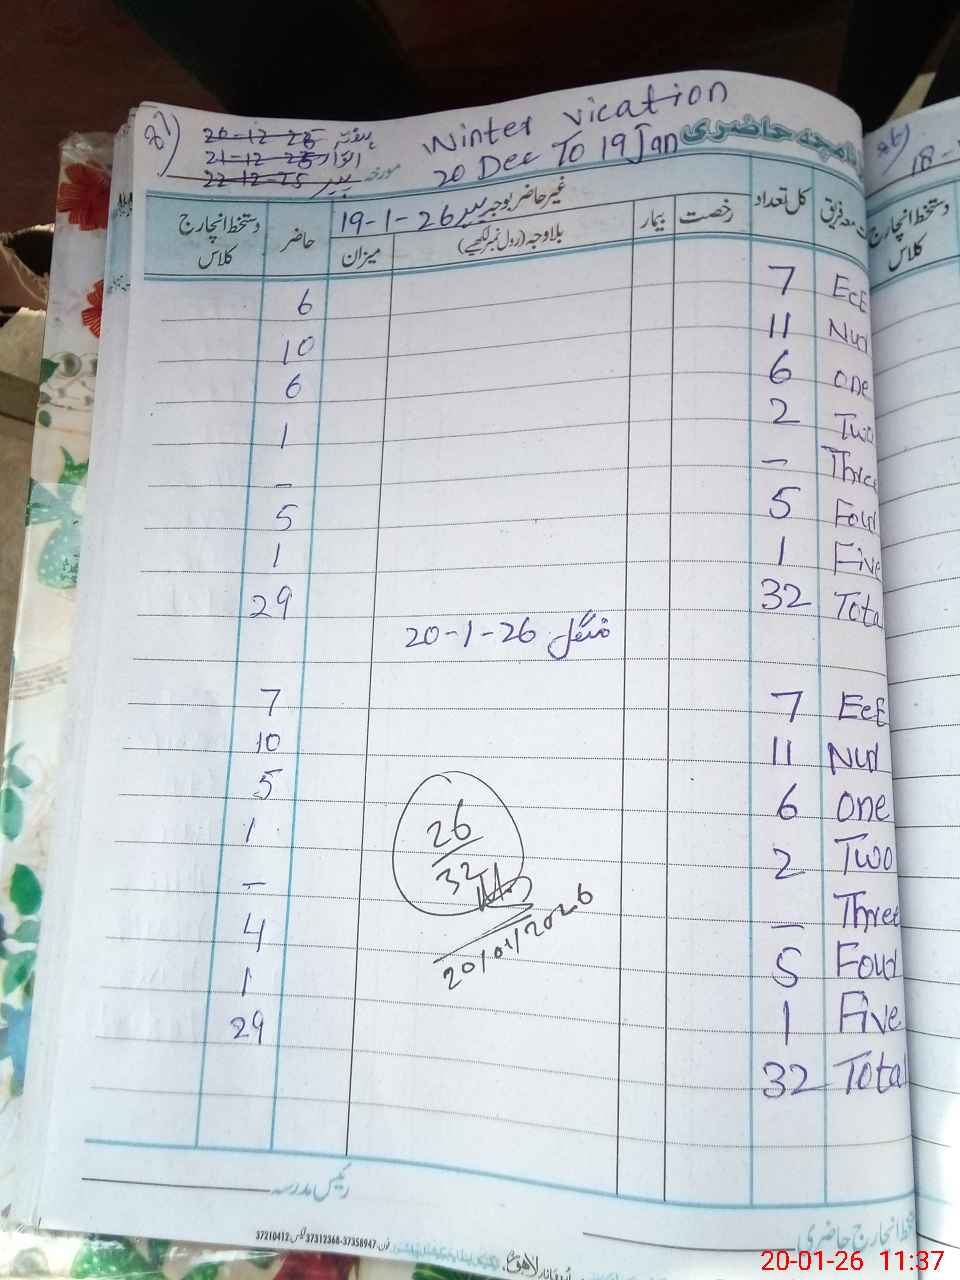 Winter vication
20 Dec To 19 Jan
20-12-25 ہفتہ
21-12-25 اتوار
22-12-25 پیر مورخہ
روزنامچہ حاضری
کل تعداد
غیر حاضر بوجہ پیر 19-1-26
رخصت
بیمار
بلاوجہ (رول نمبر لکھیے)
میزان
حاضر
دستخط انچارج کلاس
EcE 7 6
Nur 11 10
one 6 6
Two 2 1
Three – –
Four 5 5
Five 1 1
Total 32 29
منگل 20-1-26
EcE 7 7
Nur 11 10
one 6 5
Two 2 1
Three – –
Four 5 4
Five 1 1
Total 32 29
26
32
20/01/2026
رئیس مدرسہ
دستخط انچارج حاضری
فون 37358947-37312368 فیکس 37210412
18-
دستخط انچارج
کلاس
20-01-26 11:37